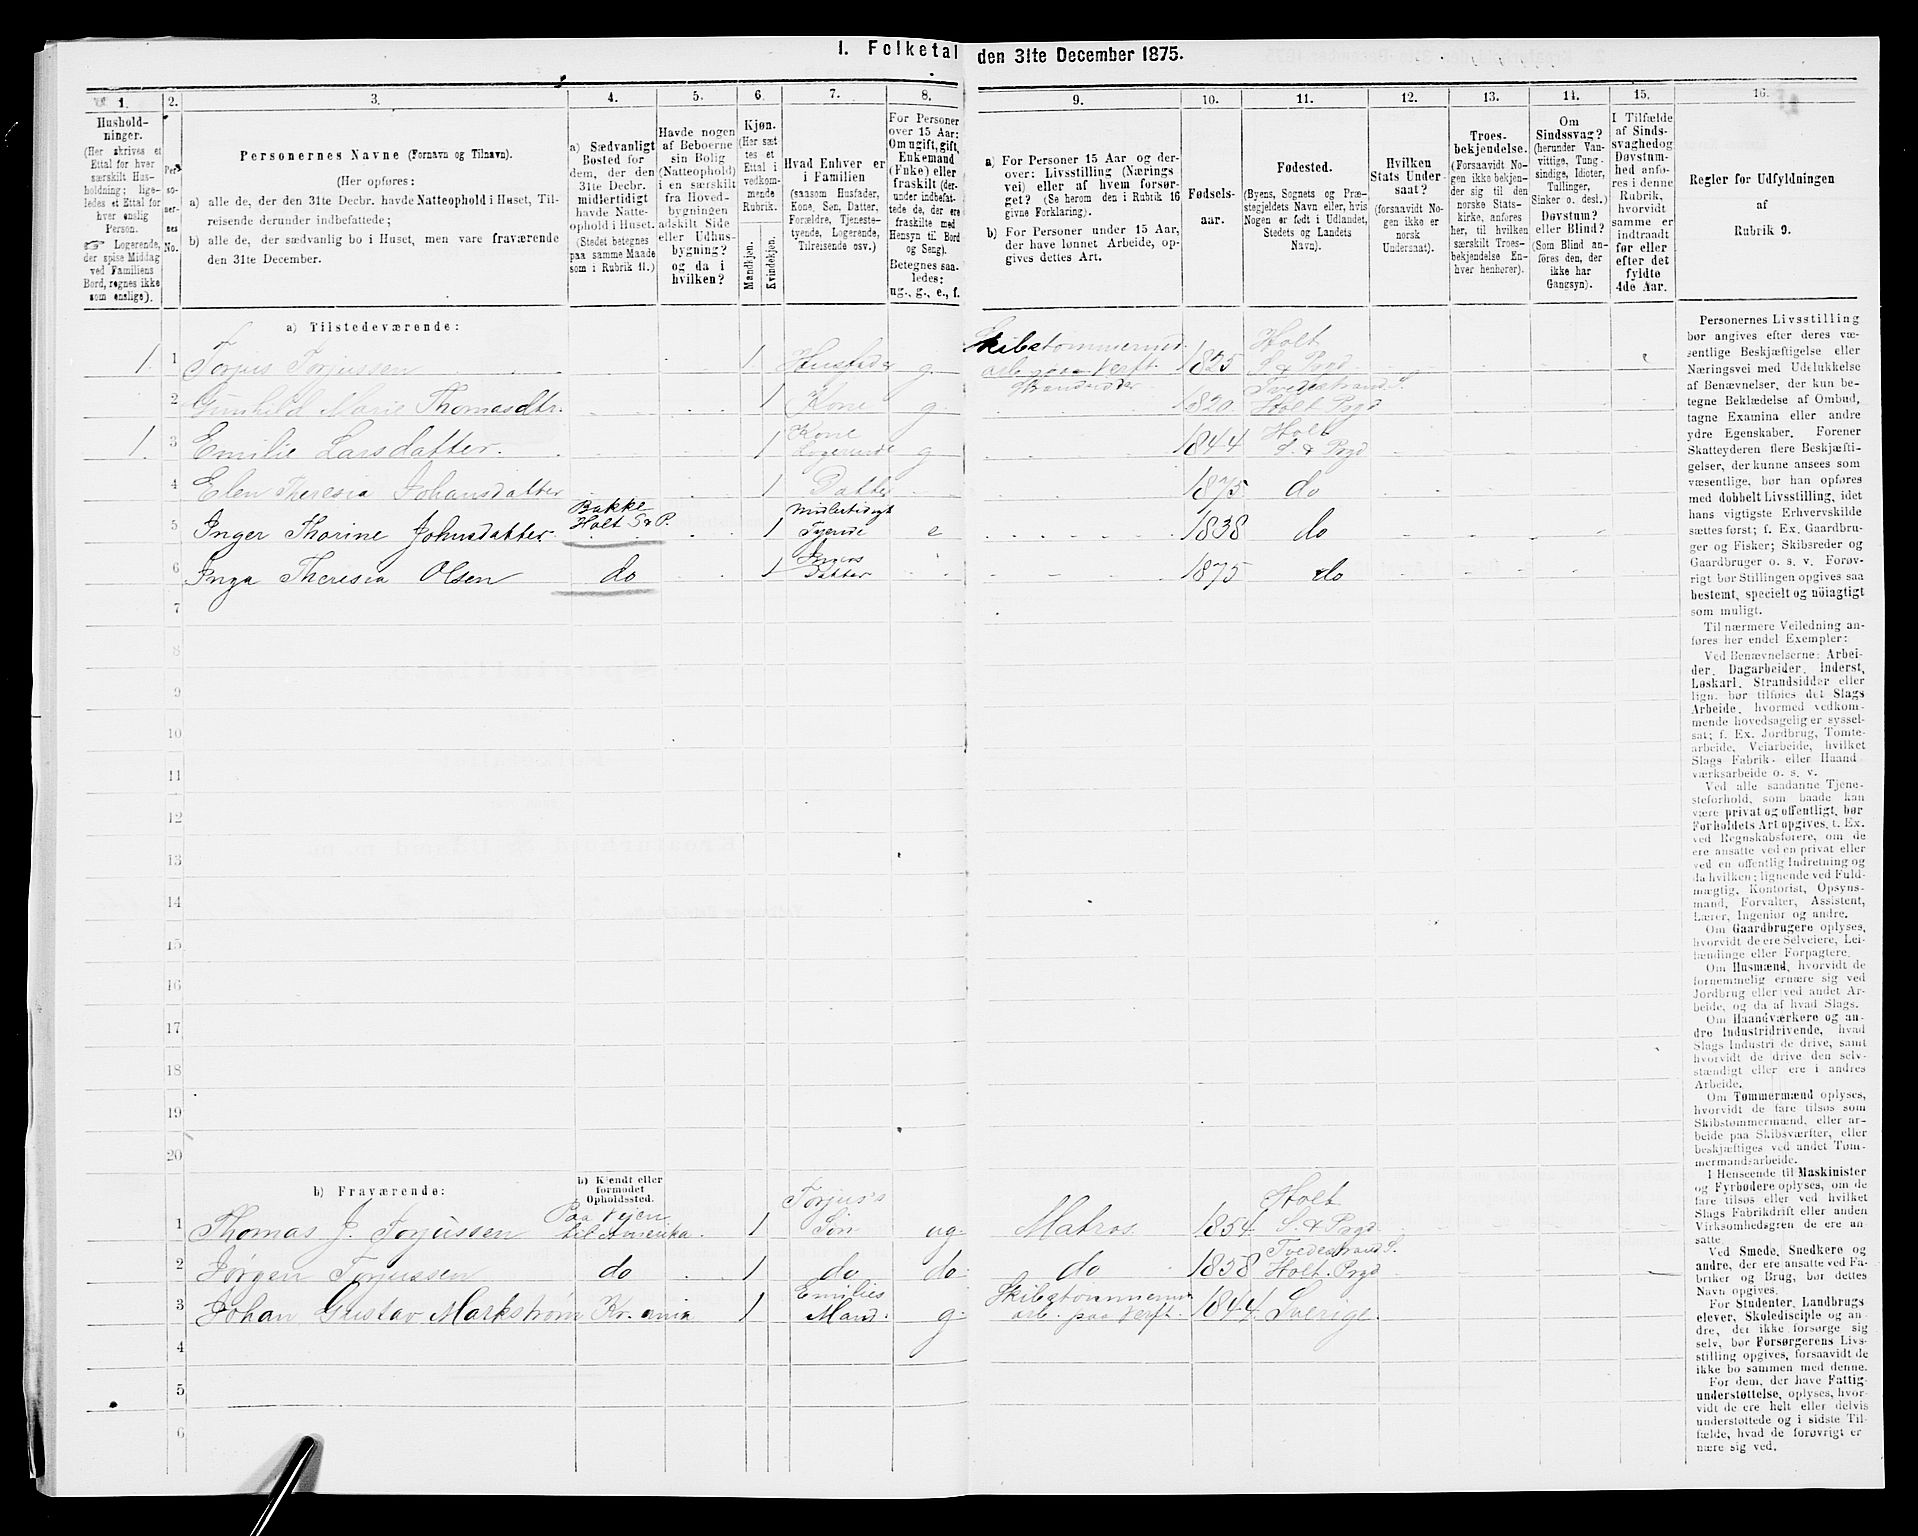 1. Folketal den 31te December 1875.
1. 2. 3. 4. 5. 6. 7. 8. 9. 10. 11. 12. 13. 14. 15. 16.
Hushold-
ninger.
(Her skrives et
Ettal for hver
særskilt Hus-
holdning; lige-
ledes et Ettal for
hver enslig
Person.
☞ Logerende,
der spise Middag
ved Familiens
Bord, regnes ikke
som enslige).
Per-
so-
ner-
nes
No.
Personernes Navne (Fornavn og Tilnavn).
(Her opføres:
a) alle de, der den 31te Decbr. havde Natteophold i Huset, Til-
reisende derunder indbefattede;
b) alle de, der sædvanlig bo i Huset, men vare fraværende
den 31te December.
a) Sædvanligt
Bosted for
dem, der den
31te Decbr.
midlertidigt
havde Natte-
ophold i Huset.
(Stedet betegnes
paa samme Maade
som i Rubrik 11.)
Havde nogen
af Beboerne
sin Bolig
(Natteophold)
i en særskilt
fra Hoved-
bygningen
adskilt Side-
eller Udhus-
bygning?
og da i
hvilken?
Kjøn.
(Her sæt-
tes et
Ettal i
vedkom-
mende
Rubrik.
Mandkjøn.
Kvindekjøn.
Hvad Enhver er
i Familien
(saasom Husfader,
Kone, Søn, Datter,
Forældre, Tjeneste-
tyende, Logerende,
Tilreisende osv.)
For Personer
over 15 Aar:
Om ugift, gift,
Enkemand
(Enke) eller
fraskilt (der-
under indbefat-
tede de, der ere
fraskilte med
Hensyn til Bord
og Seng).
Betegnes saa-
ledes:
ug., g., e., f.
a) For Personer 15 Aar og der-
over: Livsstilling (Nærings
vei) eller af hvem forsør-
get? (Se herom den i Rubrik 16
givne Forklaring).
b) For Personer under 15 Aar,
der have lønnet Arbeide, op-
gives dettes Art.
Fødsels-
aar.
Fødested.
(Byens, Sognets og Præ-
stegjeldets Navn eller, hvis
Nogen er født i Udlandet,
Stedets og Landets
Navn).
Hvilken
Stats Under-
saat?
(forsaavidt No-
gen ikke er
norsk
Undersaat).
Troes-
bekjendelse.
(Forsaavidt No-
gen ikke bekjen-
der sig til den
norske Stats-
kirke, anføres
her, til hvilken
særskilt Troes-
bekjendelse En-
hver henhører).
Om
Sindssvag?
(herunder Van-
vittige, Tung-
sindige, Idioter,
Tullinger,
Sinker o. desl.)
Døvstum?
eller Blind?
(Som Blind an-
føres den, der
ikke har
Gangsyn).
I Tilfælde
af Sinds-
svaghed og
Døvstum-
hed anfø-
res i denne
Rubrik,
hvorvidt
samme er
indtraadt
før eller
efter det
fyldte
4de Aar.
Regler for Udfyldningen
af
Rubrik 9.
a) Tilstedeværende:
1. 1 Torjus Torjussen 1 Husfader g. Skibstømmermand arb. paa Verft. Strandsidder 1825 Holt S & Pgd
2 Gunhild Marie Thomasdtr. 1 Kone g. 1820 Tvedestrand S. Holt Pgd
1. 3 Emilie Larsdatter. 1 Kone Logerende g 1844 Holt S. & Pgd
4 Elen Theresia Johansdatter 1 Datter 1875 do
5 Inger Thorine Johnsdatter Bakke Holt S & P. 1 Midlertidigt Tyende e 1838 do
6 Inga Theresia Olsen do 1 Ingers Datter 1875 do
7
8
9
10
11
12
13
14
15
16
17
18
19
20
b) Fraværende:
b) Kjendt eller
formodet
Opholdssted.
1 Thomas J. Torjussen Paa Vejen til Amerika. 1 Torjus's Søn ug. Matros. 1854 Holt S. & Pgd
2 Jørgen Torjussen do 1 do do do 1858 Tvedestrand S. Holt. Pgd
3 Johan Gustav Markstrøm Kr.ania 1 Emilies Mand. g. Skibstømmermand arb. paa Verft. 1844 Sverige.
4
5
6
Personernes Livsstilling
bør angives efter deres væ-
sentlige Beskjæftigelse eller
Næringsvei med Udelukkelse
af Benævnelser, der kun be-
tegne Beklædelse af Ombud,
tagne Examina eller andre
ydre Egenskaber. Forener
Skatteyderen flere Beskjæfti-
gelser, der kunne ansees som
væsentlige, bør han opføres
med dobbelt Livsstilling, idet
hans vigtigste Erhvervskilde
sættes først; f. Ex. Gaardbru-
ger og Fisker; Skibsreder og
Gaardbruger o. s. v. Forøv-
rigt bør Stillingen opgives saa
bestemt, specielt og nöiagtigt
som muligt.
Til nærmere Veiledning an-
føres her endel Exempler:
Ved Benævnelserne: Arbei-
der, Dagarbeider, Inderst,
Løskarl, Strandsidder eller
lign. bør tilføies det Slags
Arbeide, hvormed vedkom-
mende hovedsagelig er syssel-
sat; f. Ex. Jordbrug, Tomte-
arbeide, Veiarbeide, hvilket
Slags Fabrik- eller Haand-
værksarbeide o. s. v.
Ved alle saadanne Tjene-
steforhold, som baade kan
være privat og offentligt, bør
Forholdets Art opgives, t. Ex.
ved Regnskabsførere, om de
ere ansatte ved en privat eller
ved en offentlig Indretning og
da hvilken; lignende ved Fuld-
mægtig, Kontorist, Opsyns-
mand, Forvalter, Assistent,
Lærer, Ingeniør og andre.
Om Gaardbrugere oplyses,
hvorvidt de ere Selveiere, Lei-
lændinge eller Forpagtere.
Om Husmænd, hvorvidt de
fornemmelig ernære sig ved
Jordbrug eller ved andet Ar-
beide, og da af hvad Slags.
Om Haandværkere og an-
dre Industridrivende, hvad
Slags Industri de drive, samt
hvorvidt de drive den selv-
stændigt eller ere i andres
Arbeide.
Om Tømmermænd oplyses,
hvorvidt de fare tilsøs som
Skibstømmermænd, eller ar-
beide paa Skibsværfter, eller
beskjæftiges ved andet Tøm-
mermandsarbeide.
I Henseende til Maskinister
og Fyrbødere oplyses, om de
fare tilsøs eller ved hvilket
Slags Fabrikdrift eller anden
Virksomhedsgren de ere an-
satte.
Ved Smede, Snedkere og
andre, der ere ansatte ved Fa-
briker og Brug, bør dettes
Navn opgives.
For Studenter, Landbrugs-
elever, Skoledisciple og an-
dre, der ikke forsørge sig
selv, bør Forsørgerens Livs-
stilling opgives, forsaavidt de
ikke bo sammen med denne.
For dem, der have Fattig-
understøttelse, oplyses, hvor-
vidt de ere helt eller delvis
understøttede og i sidste Til-
fælde, hvad de forøvrigt er-
nære sig ved.